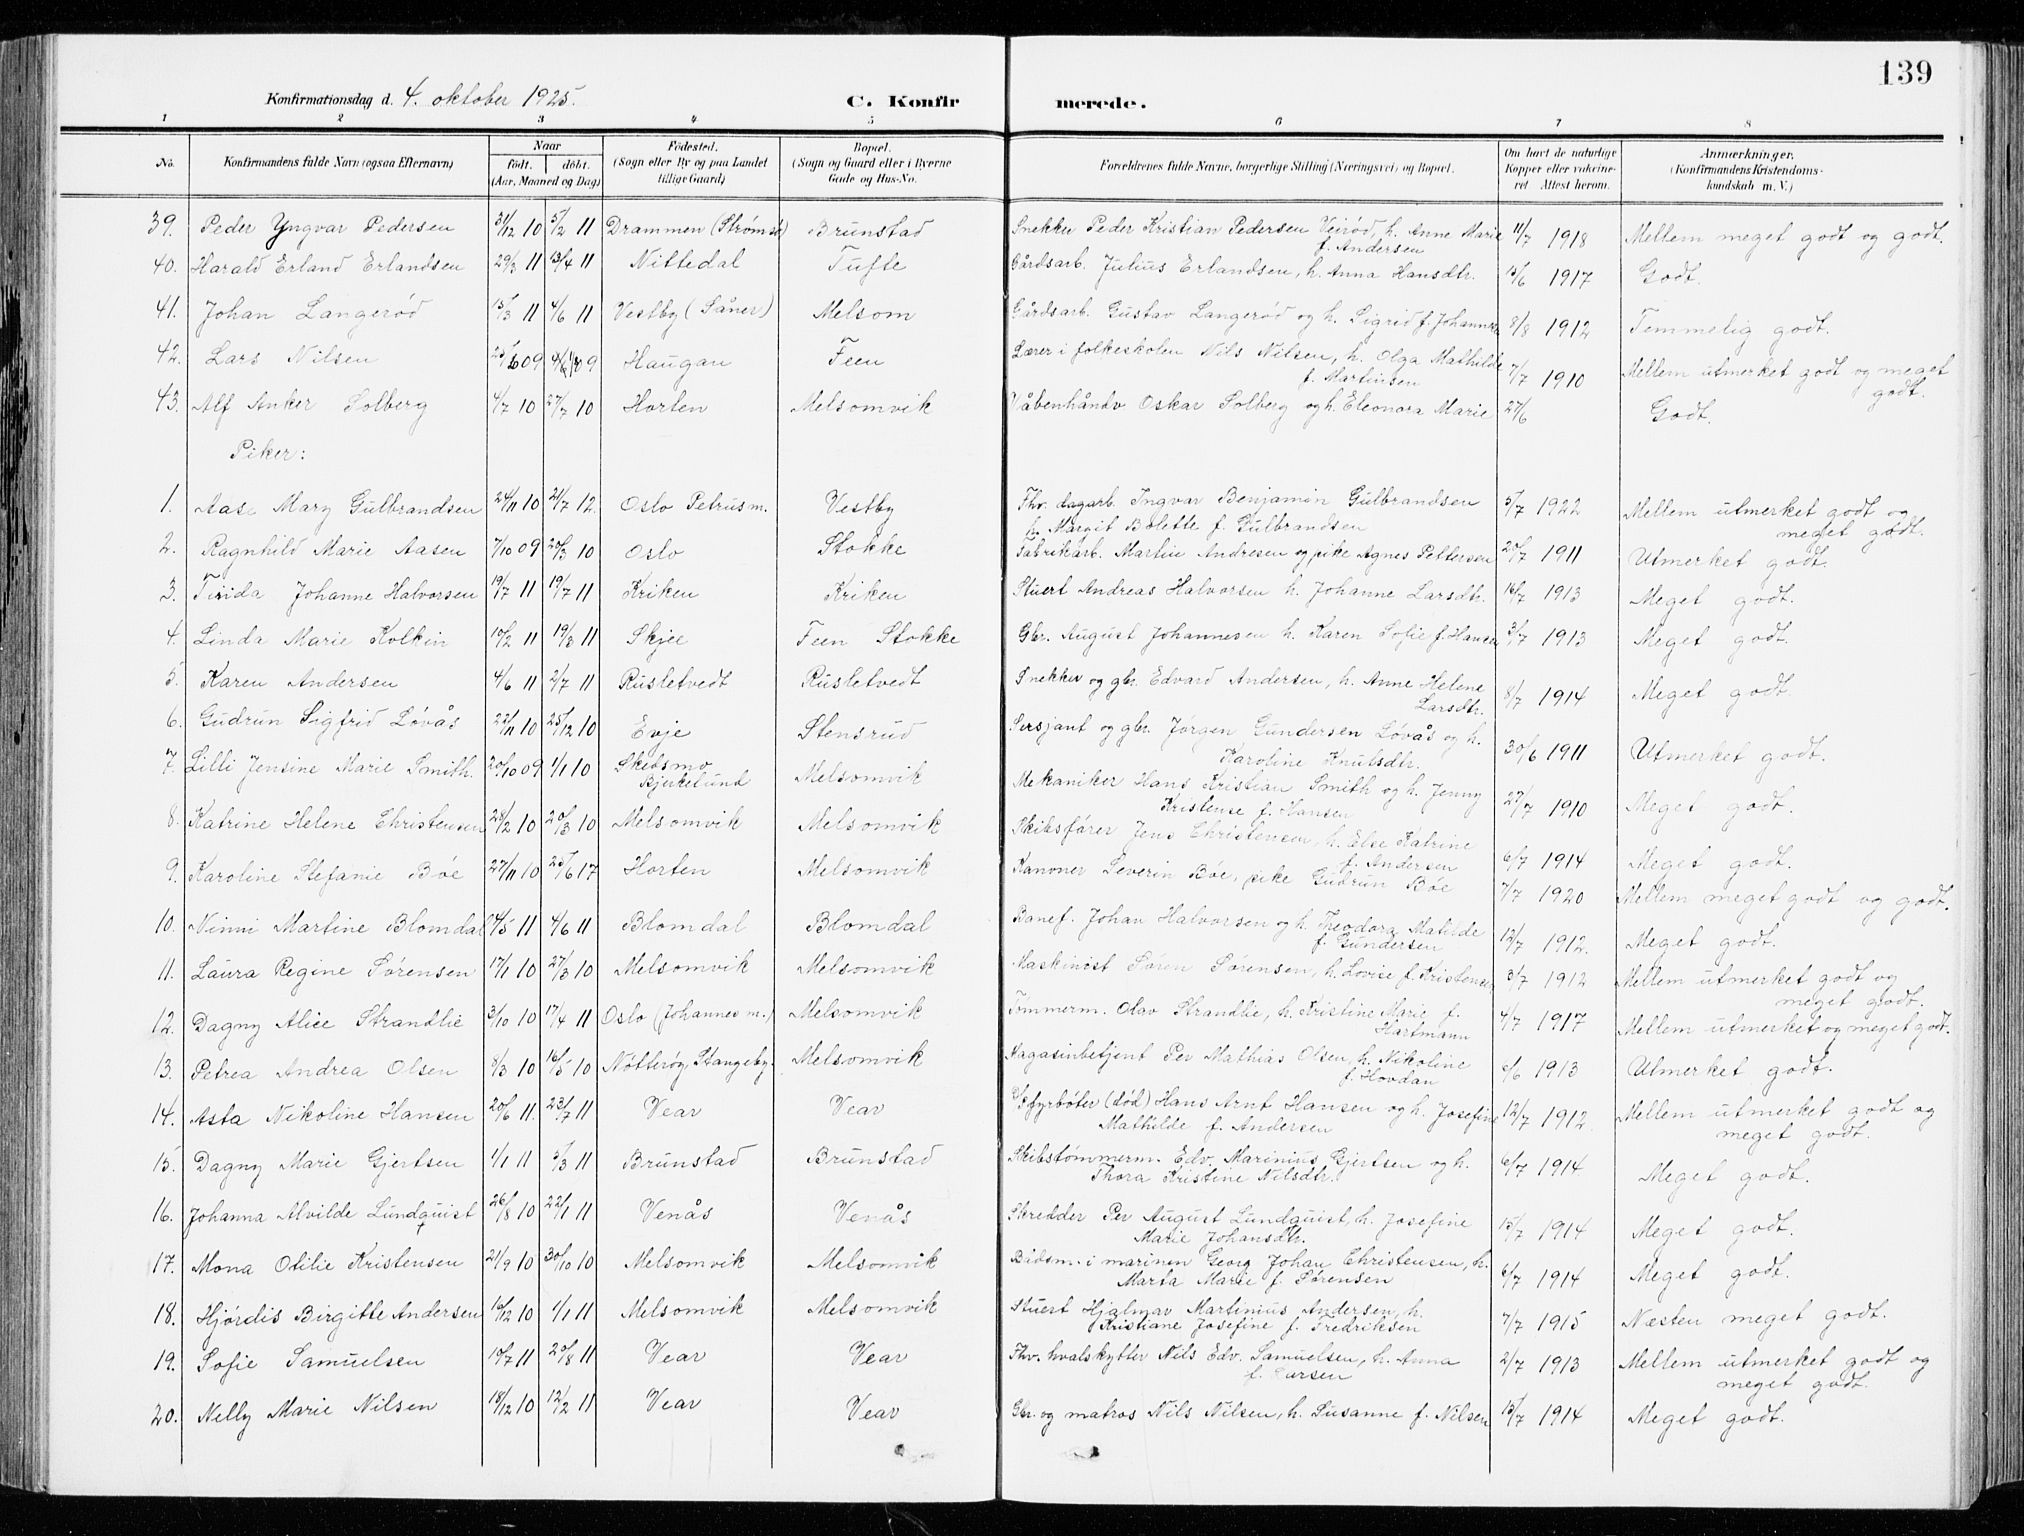 139
Konfirmationsdag d. 4. oktober 1925.
C. Konfirmerede.
1 2 3 4 5 6 7 8
No. | Konfirmandens fulde Navn (ogsaa Efternavn) | Naar født. døbt. (Aar, Maaned og Dag) | Fødested. (Sogn eller By og paa Landet tillige Gaard) | Bopæl. (Sogn og Gaard eller i Byerne Gade og Hus-No. | Forældrenes fulde Navne, borgerlige Stilling (Næringsvei) og Bopæl. | Om havt de naturlige Kopper eller vakcineret Attest herom. | Anmærkninger. (Konfirmandens Kristendomskundskab m. V.)
39. Peder Yngvar Pedersen 31/12 10 5/2 11 Drammen (Strømsø) Brunstad Snekker Peder Kristian Pedersen Veirød, h. Anne Marie f. Andersen 11/7 1918 Mellem meget godt og godt.
40. Harald Erland Erlandsen 29/3 11 13/4 11 Nittedal Tufte Gårdsarb. Julius Erlandsen, h. Anna Hansdtr. 15/6 1917 Godt.
41. Johan Langerød 15/3 11 4/6 11 Vestby (Såner) Melsom Gårdsarb. Gustav Langerød og h. Sigrid f. Johannsen 8/8 1912 Temmelig godt.
42. Lars Nilsen 09 09 Haugan Feen Lærer i folkeskolen Nils Nilsen, h. Olga Mathilde f. Martinsen 7/7 1910 Mellem utmerket godt og meget godt.
43. Alf Anker Solberg 4/7 10 27/7 10 Horten Melsomvik Våbenhåndv. Oskar Solberg og h. Eleonora Marie 27/6 Godt.
Piker:
1. Aase Mary Gulbrandsen 24/11 10 21/7 12. Oslo Petrus m. Vestby Fhv. dagarb. Ingvar Benjamin Gulbrandsen h. Margit Bolette f. Gulbrandsen 5/7 1922 Mellem utmerket godt og meget godt.
2. Ragnhild Marie Aasen 7/10 09 20/3 10 Oslo Stokke Fabrikarb. Martin Andresen og pike Agnes Pettersen 20/7 1911 Utmerket godt.
3. Tirida Johanne Halvorsen 19/7 11 19/7 11 Kriken Kriken Stuert Andreas Halvorsen h. Johanne Larsdtr. 16/7 1913 Meget godt.
4. Linda Marie Kolkin 10/2 11 19/8 11 Skjee Feen Stokke Gbr. August Johannesen h. Karen Sofie f. Hansen 3/7 1913 Meget godt.
5. Karen Andersen 4/6 11 2/7 11 Rusletvedt Rusletvedt Snekker og gbr. Edvard Andersen, h. Anne Helene Larsdtr. 8/7 1914 Meget godt.
6. Gudrun Sigfrid Løvås 22/11 10 25/12 10 Evje Stensrud Sersjant og gbr. Jørgen Gundersen Løvås og h. Karoline Knutsdtr. 30/6 1911 Utmerket godt.
7. Lilli Jensine Marie Smith. 20/10 09 1/1 10 Skedsmo Bjerkelund Melsomvik Mekaniker Hans Kristian Smith og h. Jenny Kristense f. Hansen 27/7 1910 Meget godt.
8. Katrine Helene Christensen 28/2 10 20/3 10 Melsomvik Melsomvik Skibsfører Jens Christensen, h. Else Katrine f. Andersen 6/7 1914 Meget godt.
9. Karoline Stefanie Bøe 27/11 10 25/6 17 Horten Melsomvik Kanoner Severin Bøe, pike Gudrun Bøe 7/7 1920 Mellem meget godt og godt.
10. Ninni Martine Blomdal 14/5 11 4/6 11 Blomdal Blomdal Banef. Johan Halvorsen og h. Theodora Matilde f. Gundersen 12/7 1912. Meget godt.
11. Laura Regine Sørensen 17/1 10 27/3 10 Melsomvik Melsomvik Maskinist Søren Sørensen, h. Lovise f. Kristensen 3/7 1912 Mellem utmerket godt og meget godt.
12. Dagny Alice Strandlie 31/10 10 17/4 11 Oslo (Johannes m.) Melsomvik Tømmerm. Olav Strandlie, h. Kristine Marie f. Hartmann 4/7 1917 Mellem utmerket og meget godt.
13. Petrea Andrea Olsen 8/3 10 16/5 10 Nøtterøy, Stangeby. Melsomvik Magasinbetjent Per Mathias Olsen, h. Nikoline f. Hovdan 6/6 1913 Utmerket godt.
14. Asta Nikoline Hansen 20/6 11. 23/7 11 Vear Vear Fyrbøter (død) Hans Arnt Hansen og h. Josefine Mathilde f. Andersen 12/7 1912. Mellem utmerket godt og meget godt.
15. Dagny Marie Gjertsen 1/1 11 5/3 11 Brunstad Brunstad Skibstømmerm. Edv. Marinius Gjertsen og h. Thora Kristine Nilsdtr. 6/7 1914 Meget godt.
16. Johanna Alvilde Lundquist 26/8 10 22/1 11 Venås Venås Skredder Per August Lundquist, h. Josefine Marie Johansdtr. 15/7 1914 Meget godt.
17. Mona Otilie Kristensen 21/9 10 30/10 10 Melsomvik Melsomvik Bådsm. i marinen Georg Johan Christensen, h. Marta Marie f. Sørensen 6/7 1914 Meget godt.
18. Hjørdis Birgitte Andersen 16/12 10 1/1 11 Melsomvik Melsomvik Stuert Hjalmar Martinius Andersen, h. Kristiane Josefine f. Fredriksen 7/7 1915 Næsten meget godt.
19. Sofie Samuelsen 10/7 11 20/8 11 Vear Vear Fhv. hvalskytter Nils Edv. Samuelsen, h. Anna f. Larsen 2/7 1913 Mellem utmerket godt og meget godt.
20. Nelly Marie Nilsen 18/12 10 12/2 11 Vear Vear Gbr. og matros Nils Nilsen, h. Susanne f. Nilsen 15/7 1914 Meget godt.